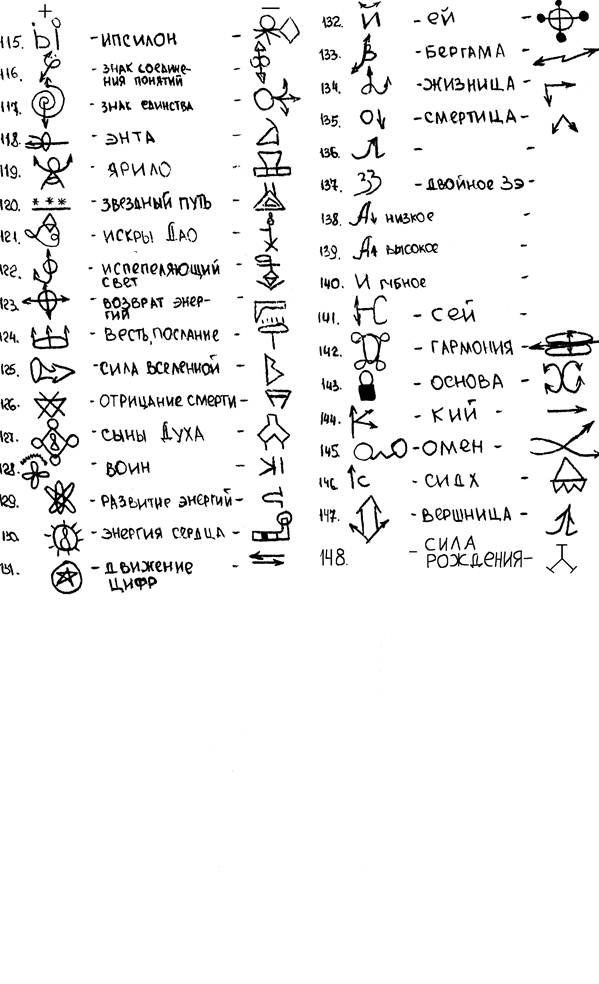 115. - ИПСИЛОН -
116. - ЗНАК СОЕДИНЕ-
НИЯ ПОНЯТИЙ -
117. - ЗНАК ЕДИНСТВА -
118. - ЭНТА -
119. - ЯРИЛО -
120. *** - ЗВЕЗДНЫЙ ПУТЬ -
121. - ИСКРЫ ДАО -
122. - ИСПЕПЕЛЯЮЩИЙ
СВЕТ -
123. - ВОЗВРАТ ЭНЕР-
ГИЙ -
124. - ВЕСТЬ, ПОСЛАНИЕ -
125. - СИЛА ВСЕЛЕННОЙ -
126. - ОТРИЦАНИЕ СМЕРТИ -
127. - СЫНЫ ДУХА -
128. - ВОИН -
129. - РАЗВИТИЕ ЭНЕРГИЙ -
130. - ЭНЕРГИЯ СЕРДЦА -
131. - ДВИЖЕНИЕ
ЦИФР -
132. Й - ЕЙ -
133. - БЕРГАМА -
134. - ЖИЗНИЦА -
135. - СМЕРТИЦА -
136. - -
137. - ДВОЙНОЕ ЗЭ -
138. А↓ НИЗКОЕ -
139. А↑ ВЫСОКОЕ -
140. И ГУБНОЕ -
141. - СЕЙ -
142. - ГАРМОНИЯ -
143. - ОСНОВА -
144. - КИЙ -
145. - ОМЕН -
146. ↑С - СИДХ -
147. - ВЕРШНИЦА -
148. - СИЛА
РОЖДЕНИЯ -